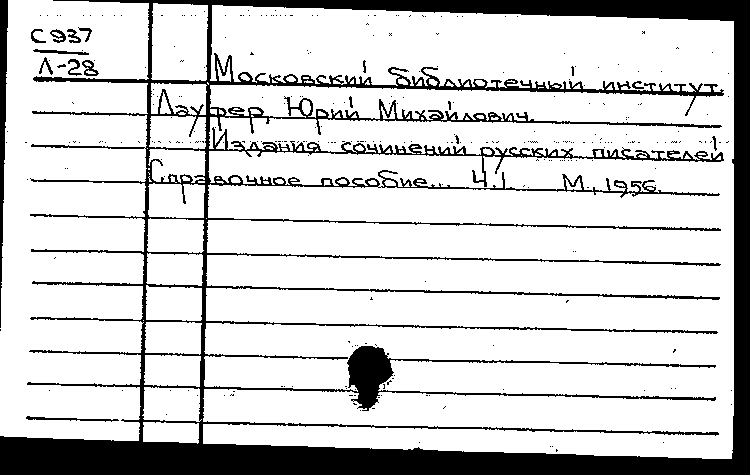 С 937
Л-28
Московский библиотечный институт.
Лауфер, Юрий Михайлович.
Издания сочинений русских писателей.
Справочное пособие... Ч.1 М., 1956.